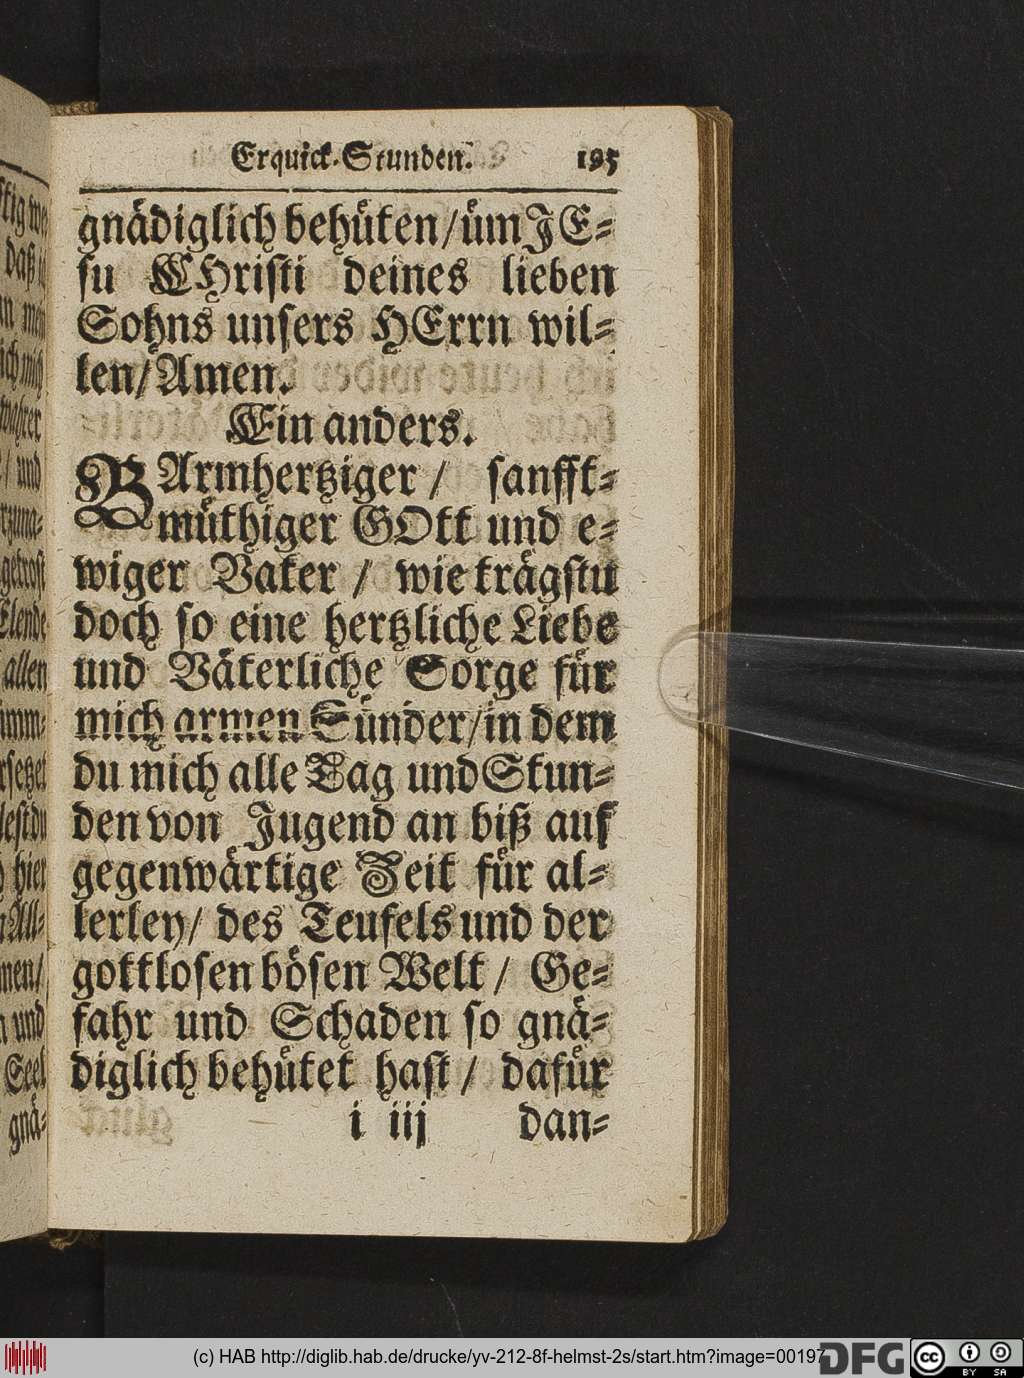 Erquick-Stunden. 195
gnädiglich behüten/ üm JE-
su CHristi deines lieben
Sohns unsers HErrn wil-
len/ Amen.
Ein anders.
BArmhertziger / sanfft-
müthiger GOtt und e-
wiger Vater / wie trägstu
doch so eine hertzliche Liebe
und Väterliche Sorge für
mich armen Sünder/ in dem
du mich alle Tag und Stun-
den von Jugend an biß auf
gegenwärtige Zeit für al-
lerley/ des Teufels und der
gottlosen bösen Welt / Ge-
fahr und Schaden so gnä-
diglich behütet hast / dafür
i iij dan-
daß
mich
und
getrost
Elende
allen
hier
All-
men/
und
Seel
gnä-
(c) HAB http://diglib.hab.de/drucke/yv-212-8f-helmst-2s/start.htm?image=00197
DFG
cc BY SA